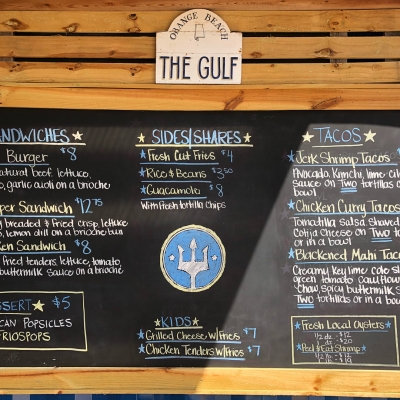 ORANGE BEACH
THE GULF
NDWICHES
Burger $8
natural beef, lettuce,
o, garlic aioli on a brioche
per Sandwich $12.75
y breaded & fried crisp lettuce
o, lemon dill on a brioche bun
ken Sandwich $8
fried tenders lettuce, tomato,
buttermilk sauce on a brioche
SSERT $5
CAN POPSICLES
RIOSPOPS
SIDES/SHARES
Fresh Cut Fries $4
Rice & Beans $3.50
Guacamole $8
With Fresh Tortilla Chips
KIDS
Grilled Cheese w/Fries $7
Chicken Tenders w/Fries $7
TACOS
Jerk Shrimp Tacos
Avocado, Kimchi, lime-cil
sauce on Two tortillas o
bowl
Chicken Curry Tacos
Tomatilla salsa shaved
Cotija Cheese on Two to
or in a bowl
Blackened Mahi Taco
Creamy key lime cole sl
green tomato
Chow spicy buttermilk s
Two tortillas or in a bow
Fresh Local Oysters
1/2 dz. - $12
dz. - $20
Peel & Eat Shrimp
1/2 lb - $12